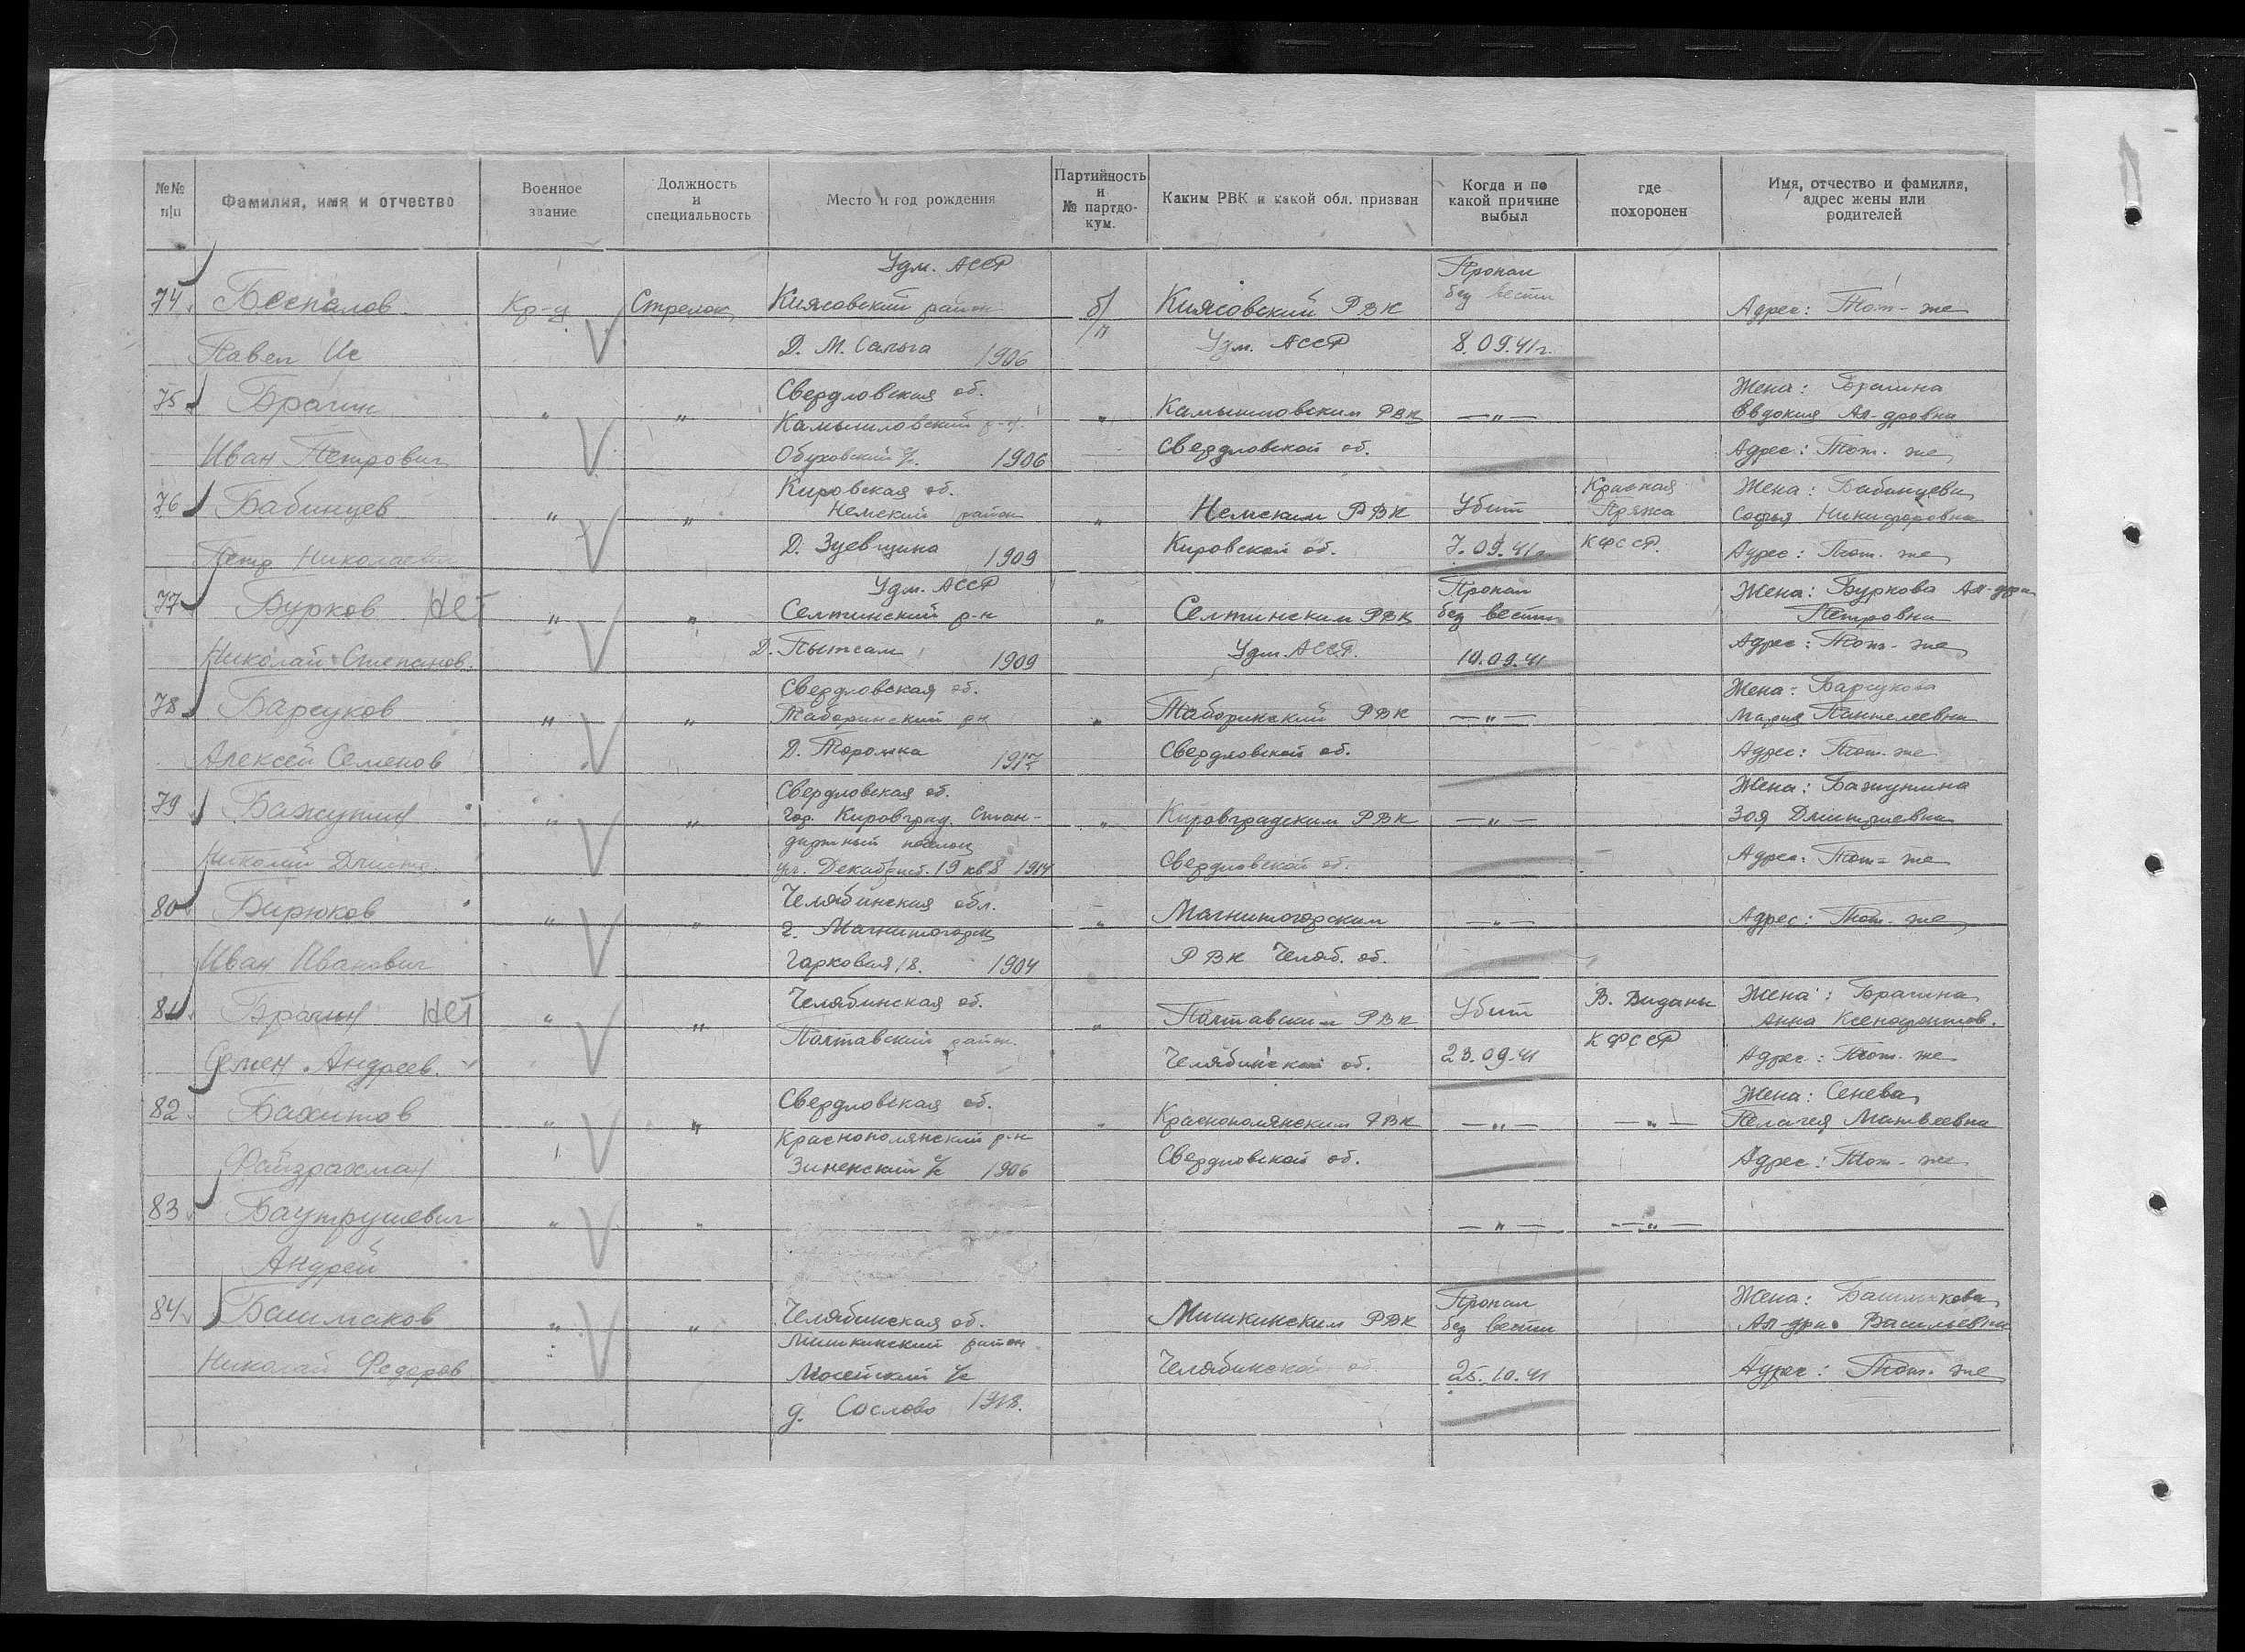 №№ п|п
Фамилия, имя и отчество
Военное звание
Должность и специальность
Место и год рождения
Партийность и № партдокум.
Каким РВК и какой обл. призван
Когда и по какой причине выбыл
где похоронен
Имя, отчество и фамилия, адрес жены или родителей
74. Беспалов
Павел Ис
Кр-ц
Стрелок
Удм. АССР
Киясовский район
Д. М. Салья 1906
б/п
Киясовский РВК
Удм. АССР
Пропал
без вести
8.09.41г.
Адрес: Тот-же
75 Брагин
Иван Петрович
"
"
Свердловская об.
Камышловский р-н.
Обуховский с/с. 1906
"
Камышловским РВК
Свердловской об.
—"—
Жена: Брагина
Евдокия Ал-дровна
Адрес: Тот-же
76 Бабинцев
Петр Николаевич
"
"
Кировская об.
Немский район
Д. Зуевщина 1909
"
Немским РВК
Кировской об.
Убит
7.09.41г.
Красная
Пряжа
КФССР.
Жена: Бабинцева
Софья Никифоровна
Адрес: Тот-же
77 Бурков Нет
Николай Степанов.
"
"
Удм. АССР
Селтинский р-н
Д. Пытсам 1909
"
Селтинским РВК
Удм. АССР.
Пропал
без вести
10.09.41
Жена: Буркова Ал-дра
Петровна
Адрес: Тот-же
78 Барсуков
Алексей Семенов
"
"
Свердловская об.
Таборинский рн
Д. Торомка 1917
"
Таборинский РВК
Свердловской об.
—"—
Жена: Барсукова
Мария Пантелеевна
Адрес: Тот-же
79 Бажутин
Николай Дмитр.
"
"
Свердловская об.
гор. Кировград. Стан-
дартный поселок
ул. Декабрист. 19 кв 8 1914
"
Кировградским РВК
Свердловской об.
—"—
Жена: Бажутина
Зоя Дмитриевна
Адрес: Тот-же
80 Бирюков
Иван Иванович
"
"
Челябинская обл.
г. Магнитогорск
Горковая 18. 1904
"
Магнитогорским
РВК Челяб. об.
—"—
Адрес: Тот-же
81. Брагин Нет
Семен Андреев.
"
"
Челябинская об.
Полтавский район.
"
Полтавским РВК
Челябинской об.
Убит
23.09.41
В. Виданы
КФССР
Жена: Брагина
Анна Ксенофонтов.
Адрес: Тот-же
82. Бахитов
Файзрахман
"
"
Свердловская об.
Краснополянский р-н
Зиненский с/с 1906
"
Краснополянским РВК
Свердловской об.
—"—
—"—
Жена: Сенева
Пелагея Матвеевна
Адрес: Тот-же
83. Баутрушевич
Андрей
"
"
—"—
—"—
84. Башмаков
Николай Федоров
"
"
Челябинская об.
Мишкинский район
Мосейский с/с
д. Сослово 1918.
Мишкинским РВК
Челябинской об
Пропал
без вести
25.10.41
Жена: Башмакова
Ал-дра Васильевна
Адрес: Тот-же